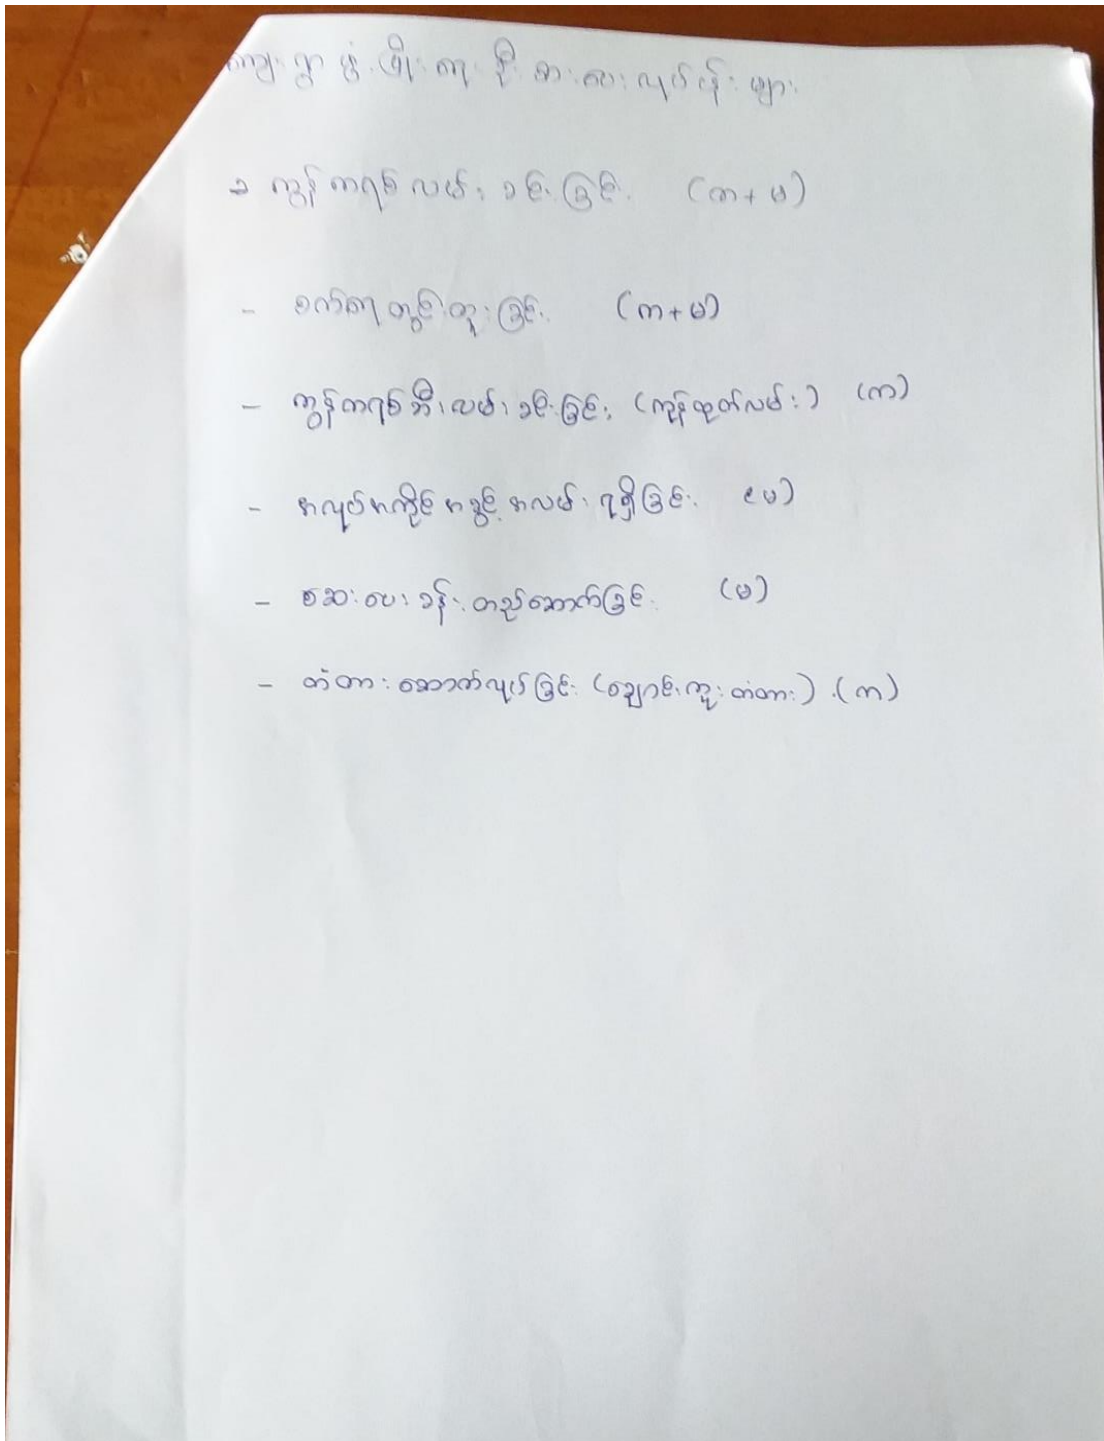 ကျေးရွာ ဖွံ့ဖြိုးရေး ဦးစားပေး လုပ်ငန်းများ
- ကွန်ကရစ်လမ်း ခင်းခြင်း (က+မ)
- စက်ရေတွင်းတူးခြင်း (က+မ)
- ကွန်ကရစ် လမ်းခင်းခြင်း (ကုန်ထုတ်လမ်း) (က)
- အလုပ်အကိုင်အခွင့်အလမ်းရရှိခြင်း (မ)
- ဆေးပေးခန်း တည်ဆောက်ခြင်း (မ)
- တံတားဆောက်လုပ်ခြင်း (ချောင်းကူးတံတား) (က)